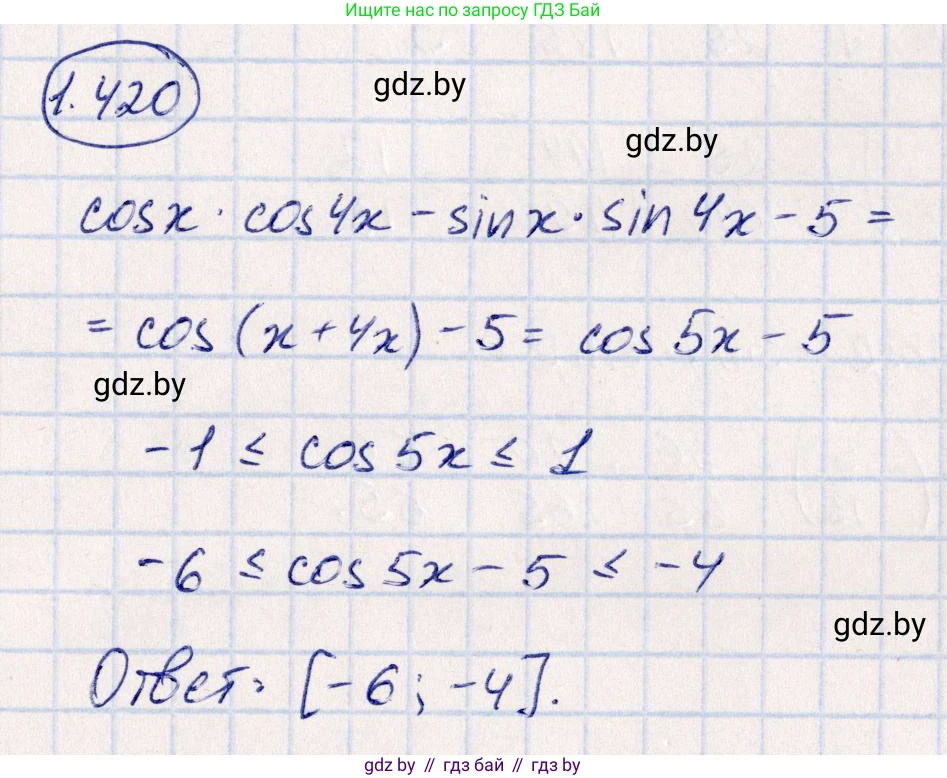 Ищите нас по запросу ГДЗ Бай
1.420
gdz.by
gdz.by
cosx · cos4x - sinx · sin4x - 5 =
= cos(x + 4x) - 5 = cos5x - 5
gdz.by
-1 ≤ cos5x ≤ 1
-6 ≤ cos5x - 5 ≤ -4
gdz.by
Ответ: [-6; -4].
gdz.by // гдз бай // гдз by